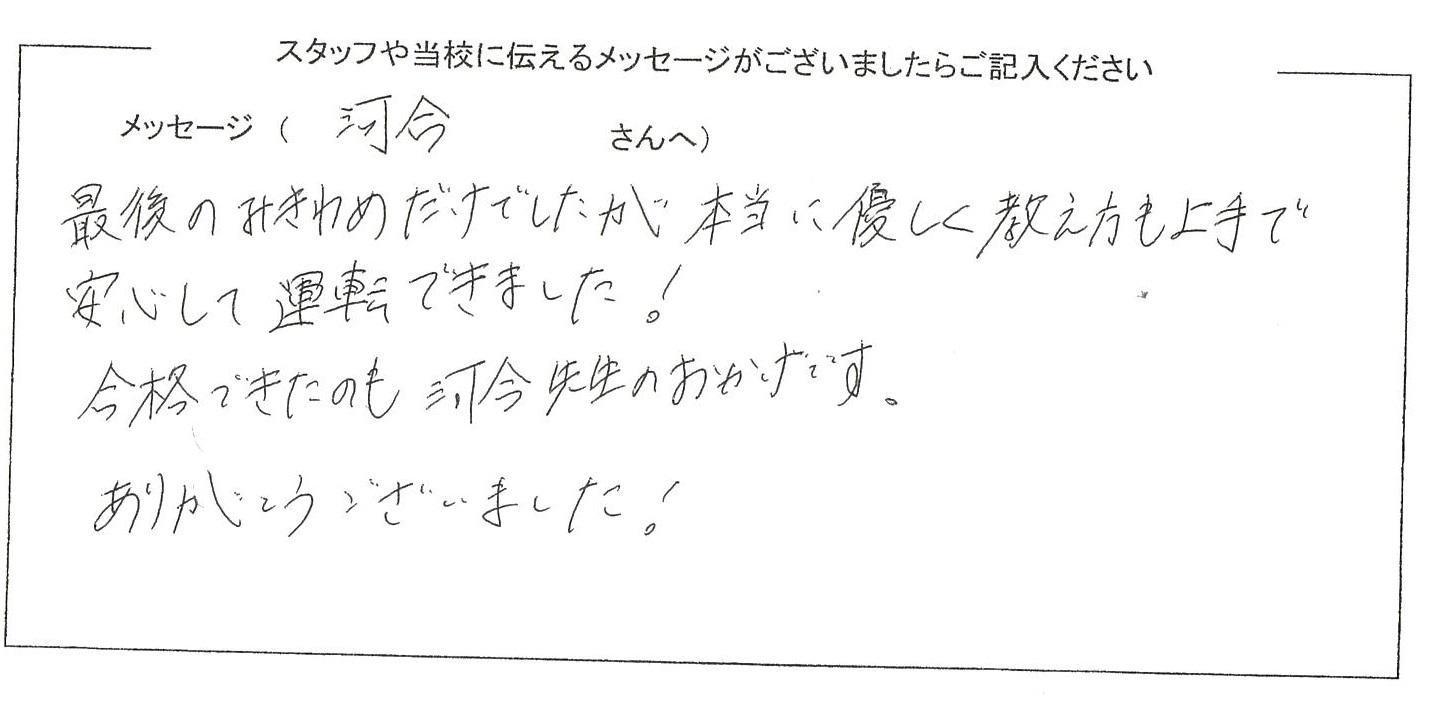 スタッフや当校に伝えるメッセージがございましたらご記入ください
メッセージ（ 河合 さんへ）
最後のみきわめだけでしたが本当に優しく教え方も上手で
安心して運転できました！
合格できたのも河合先生のおかげです。
ありがとうございました！